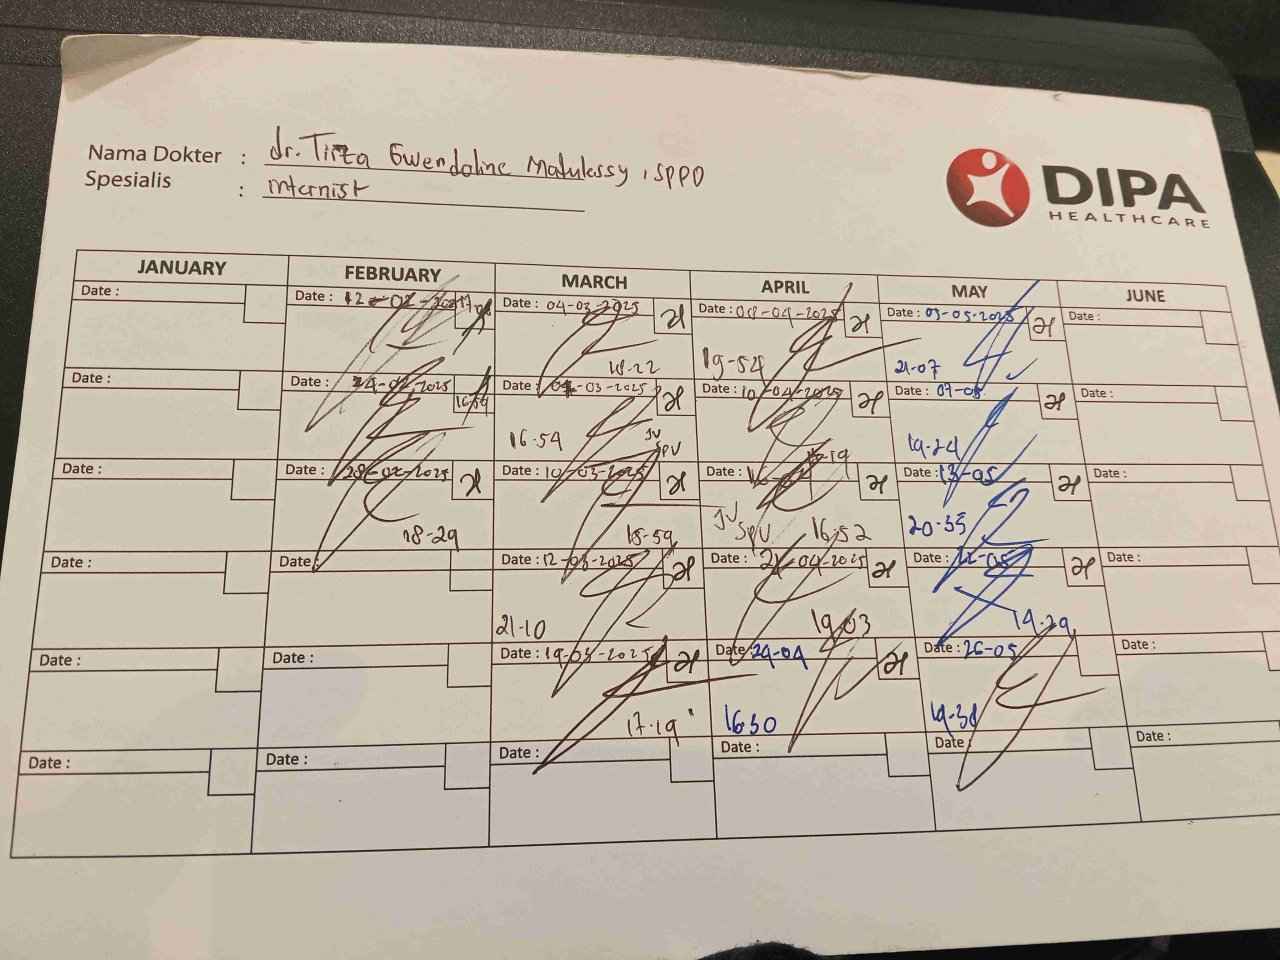 Nama Dokter : dr. Tirza Gwendoline Matulessy, SPPD
Spesialis : internist
DIPA
HEALTHCARE
JANUARY FEBRUARY MARCH APRIL MAY JUNE
Date : Date : 12-02- Date : 04-03-2025 Date : 08-04-2025 Date : 05-05-2025 Date :
18-22 19-54 21-07
Date : Date : 24-02-2025 Date : 07-03-2025 Date : 10-04-2025 Date : 07-05- Date :
16-54 JV SPV 19-24
Date : Date : 28-02-2025 Date : 10-03-2025 Date : 16-04 Date : 13-05 Date :
18-29 18-59 JV SPV 16-52 20-35
Date : Date : Date : 12-03-2025 Date : 21-04-2025 Date : 22-05 Date :
21-10 19-03 19-29
Date : Date : Date : 19-03-2025 Date : 29-04 Date : 26-05 Date :
17-19 1630 19-38
Date : Date : Date : Date : Date : Date :